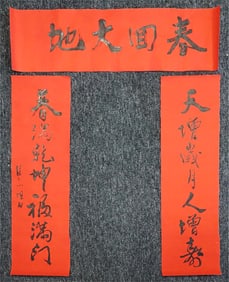 春回大地
天增歲月人增壽
春滿乾坤福滿门